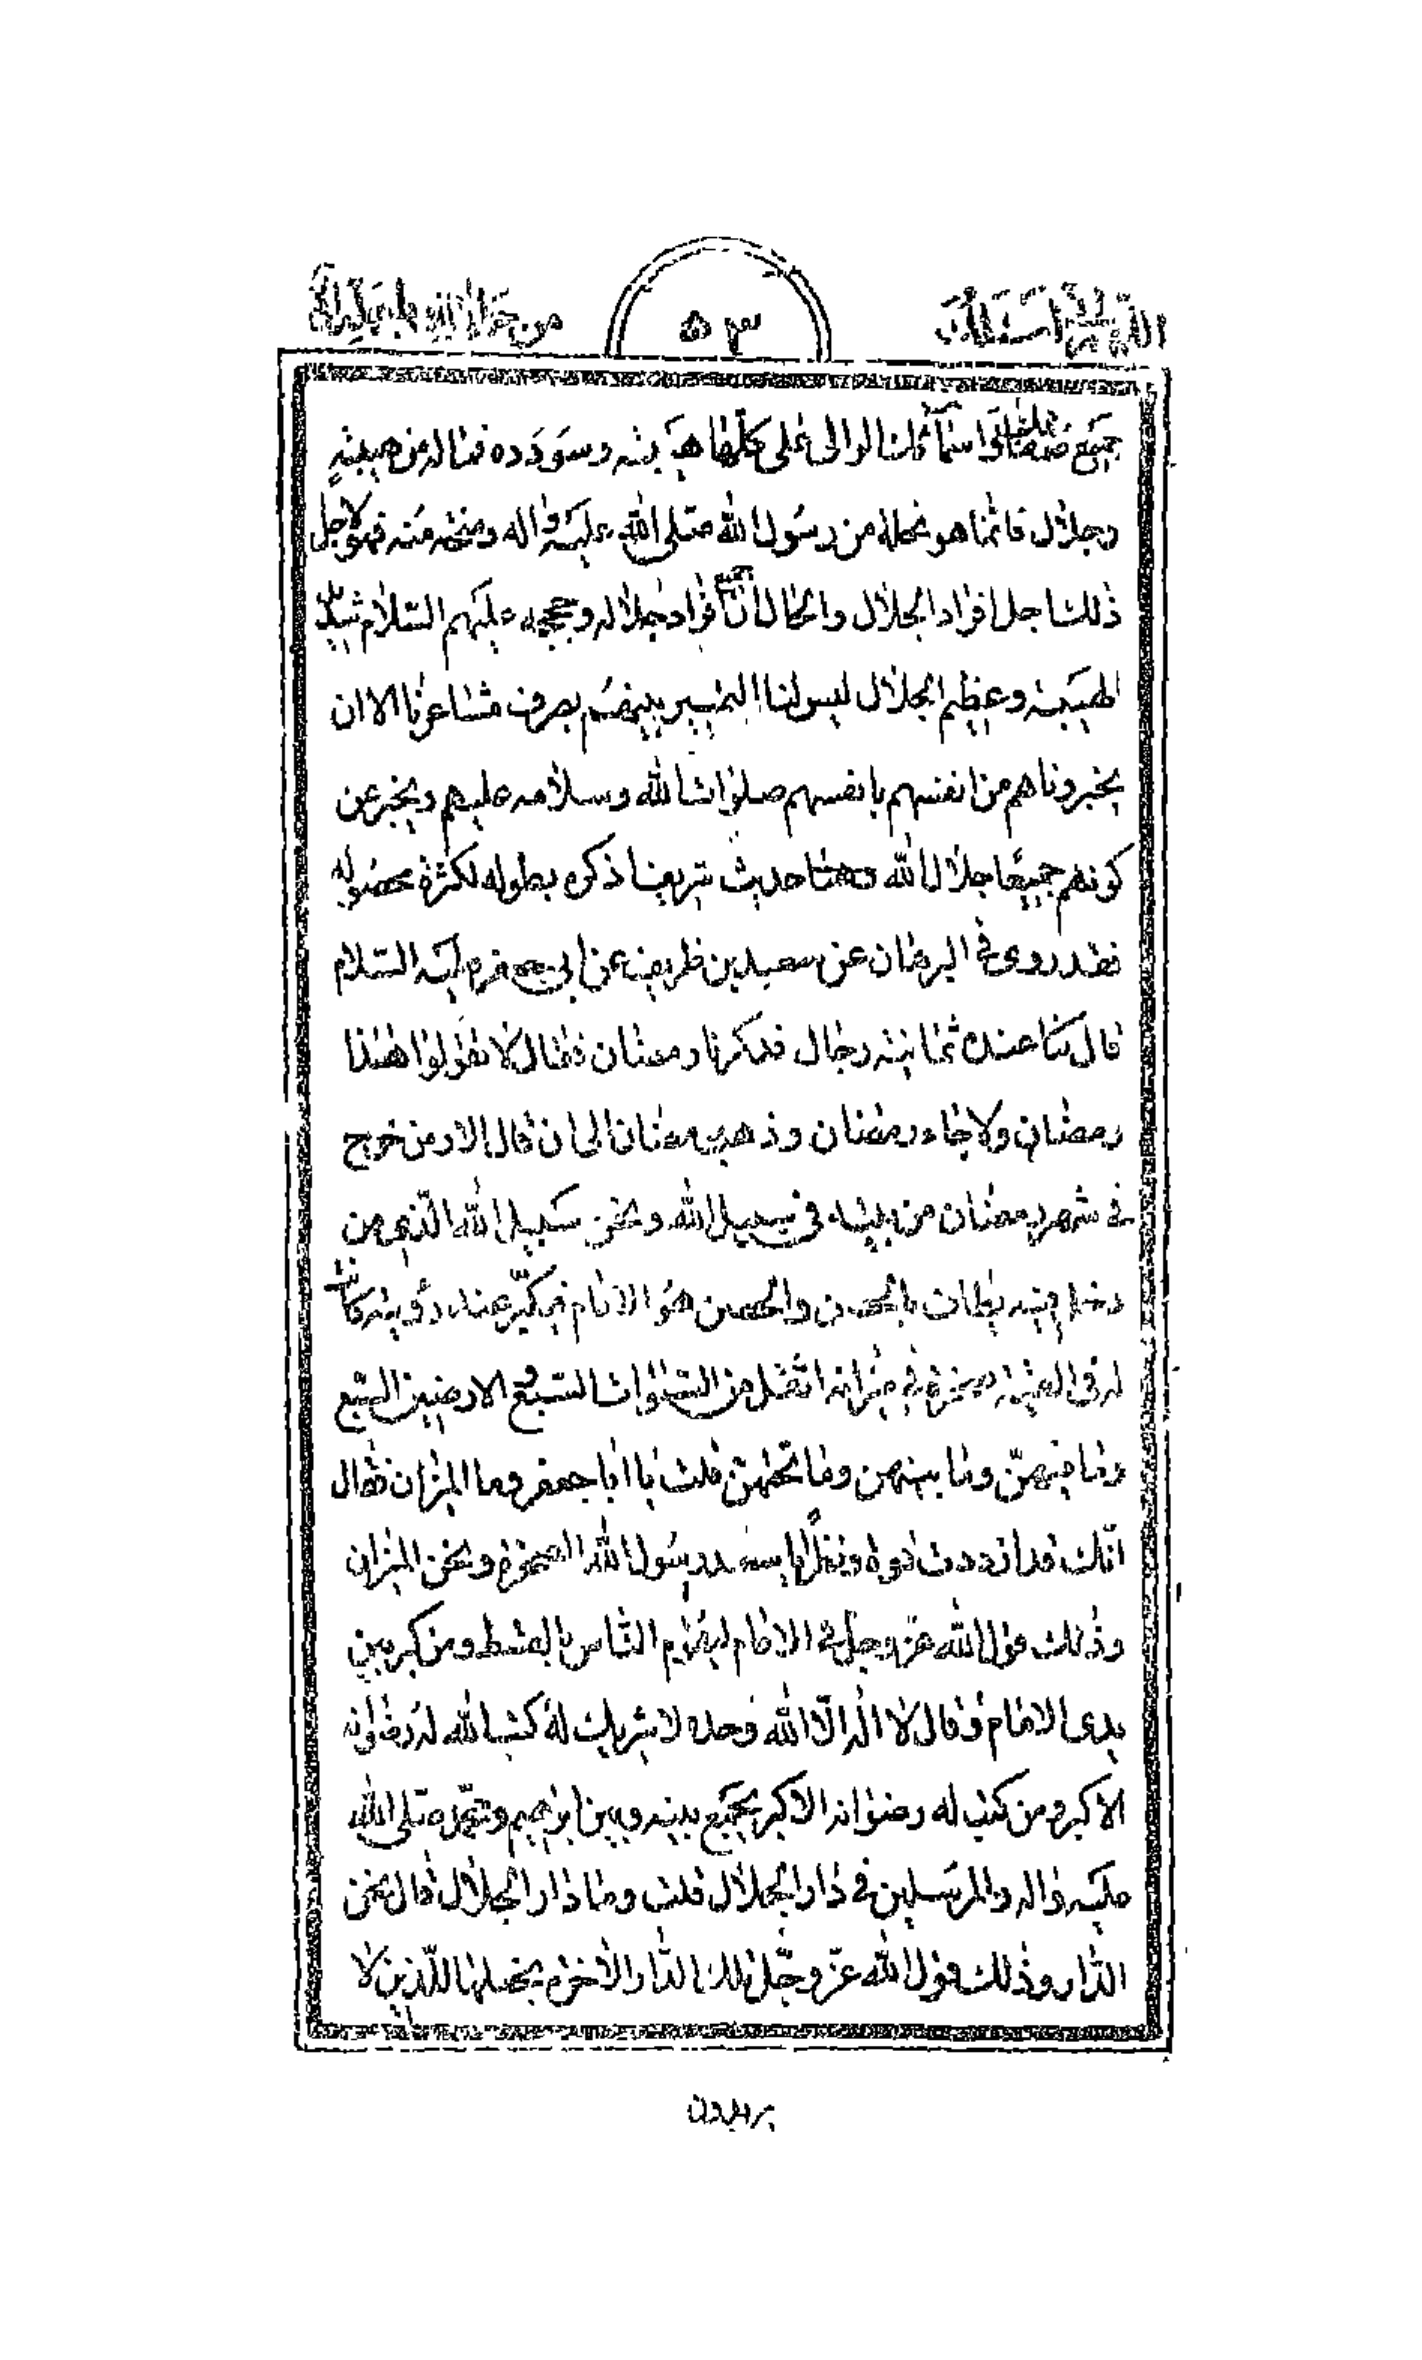 اللّهمّ انّي اسئلك
٥٣
جميع صفاته واسمائه لنا لوالى على كلّها هيبته وسودده فماله من هيبةٍ
وجلال فانّما هو نحلة من رسول الله صلّى الله عليه واله ومنحة منه فهو لاجل
ذلك اجل افراد الجلال والحال انّ افراد جلاله وحججه عليهم السّلام شديد
الهيبة وعظيم الجلال ليس لنا التمييز بينهم بصرف مشاعرنا الا ان
يخبروناهم من انفسهم بانفسهم صلوات الله وسلامه عليهم ويخبر عن
كونهم جميعًا جلال الله وهنا حديث شريف اذكره بطوله لكثرة محصوله
فقد روى فى البرهان عن سعد بن ظريف عن ابى جعفر عليه السّلام
قال كنّا عنده ثمانية رجال فذكرنا رمضان فقال لا تقولوا هذا
رمضان ولا جاء رمضان وذهب رمضان الى ان قال الا ومن خرج
فى شهر رمضان من بيته فى سبيل الله ونحن سبيل الله الّذى من
دخل فيه يطاف بالحصن والحصن هو الامام فيكبّر عند رؤيته كانت
له يوم القيمة صخرة فى ميزانه اثقل من السّموات السّبع و الارضين السّبع
وما فيهنّ وما بينهن وما تحتهنّ قلت يا ابا جعفر وما الميزان فقال
انّك قد ازددت قوة ونظرًا يا سعد رسول الله الصخرة ونحن الميزان
وذلك قول الله عزّ وجلّ فى الامام ليقوم النّاس بالقسط ومن كبر بين
يدى الامام وقال لا اله الّا الله وحده لا شريك له كتب الله له رضوانه
الاكبر ومن كتب له رضوانه الاكبر يجمع بينه وبين ابرهيم ومحمّد صلّى الله
عليه واله والمرسلين فى دار الجلال قلت وما دار الجلال قال نحن
الدّار وذلك قول الله عزّ وجّل تلك الدّار الاخرة نجعلها للّذين لا
يريدون